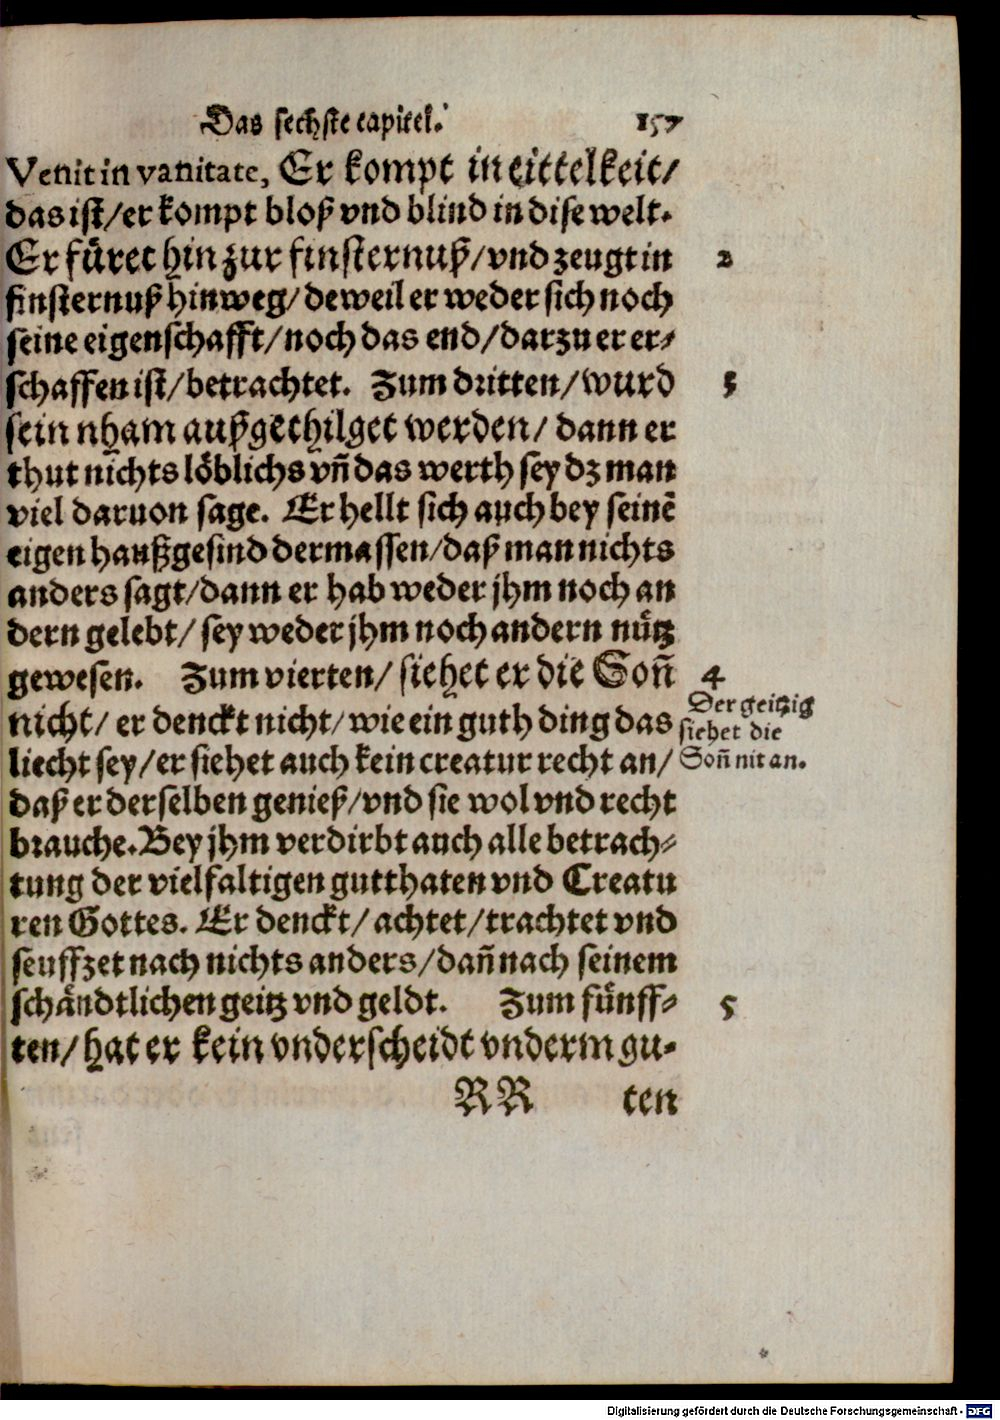 Das sechste capitel. 157
Venit in vanitate, Er kompt in eittelkeit/
das ist/er kompt bloß vnd blind in dise welt.
Er fűret hin zur finsternuß/vnd zeugt in 2
finsternuß hinweg/deweil er weder sich noch
seine eigenschafft/noch das end/darzu er er⸗
schaffen ist/betrachtet. Zum dritten/wurd 3
sein nham außgethilget werden/ dann er
thut nichts lőblichs vñ das werth sey dz man
viel daruon sage. Er hellt sich auch bey seinẽ
eigen haußgesind dermassen/daß man nichts
anders sagt/dann er hab weder jhm noch an
dern gelebt/ sey weder jhm noch andern nűtz
gewesen. Zum vierten/ siehet er die Soñ 4
nicht/ er denckt nicht/ wie ein guth ding das
Der geitzig
siehet die
Soñ nit an.
liecht sey/er siehet auch kein creatur recht an/
daß er derselben genieß/vnd sie wol vnd recht
brauche. Bey jhm verdirbt auch alle betrach⸗
tung der vielfaltigen gutthaten vnd Creatu
ren Gottes. Er denckt/ achtet/trachtet vnd
seuffzet nach nichts anders/dañ nach seinem
schändtlichen geitz vnd geldt. Zum fűnff⸗ 5
ten/ hat er kein vnderscheidt vnderm gu⸗
RR ten
Digitalisierung gefördert durch die Deutsche Forschungsgemeinschaft - DFG